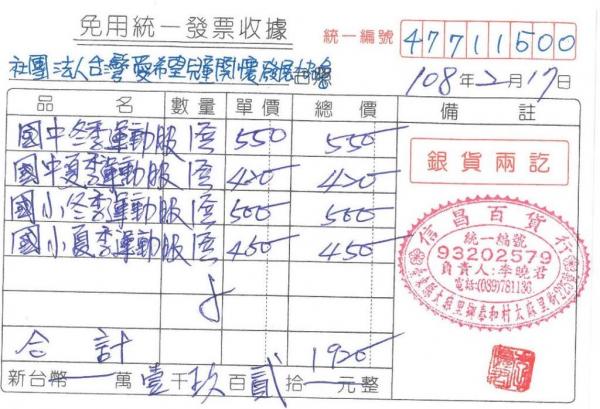 免用統一發票收據
統一編號 47711500
社團法人台灣愛希望兒童關懷發展協會 台照
108年2月17日
品名 數量 單價 總價 備註
國中冬季運動服 1套 550 550
國中夏季運動服 1套 420 420
國小冬季運動服 1套 500 500
國小夏季運動服 1套 450 450
銀貨兩訖
信昌百貨行
統一編號
93202579
負責人:李曉君
電話:(089)781136
合計 1920
新台幣 萬壹千玖百貳拾 元整